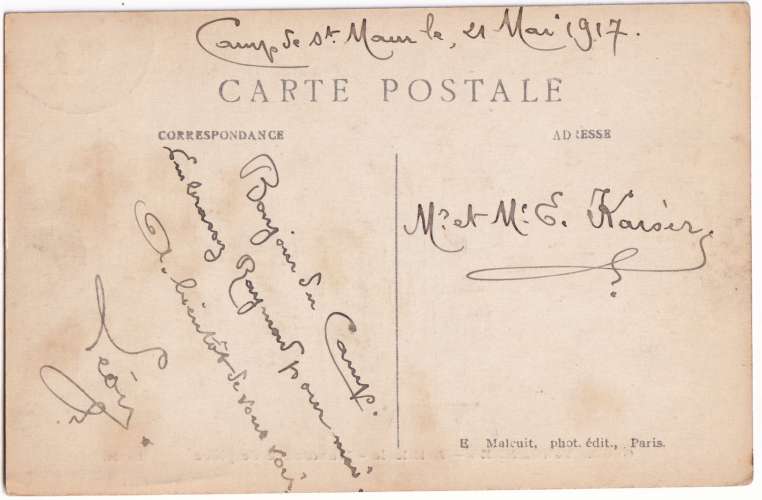 Camp de St Maur le, 21 Mai 1917.
CARTE POSTALE
CORRESPONDANCE
ADRESSE
Bonjour du Camp.
Embrassez Raymond pour moi.
A bientôt de vous voir
Léon.
Mr. et Me. E. Kaiser.
E Malcuit, phot. édit., Paris.